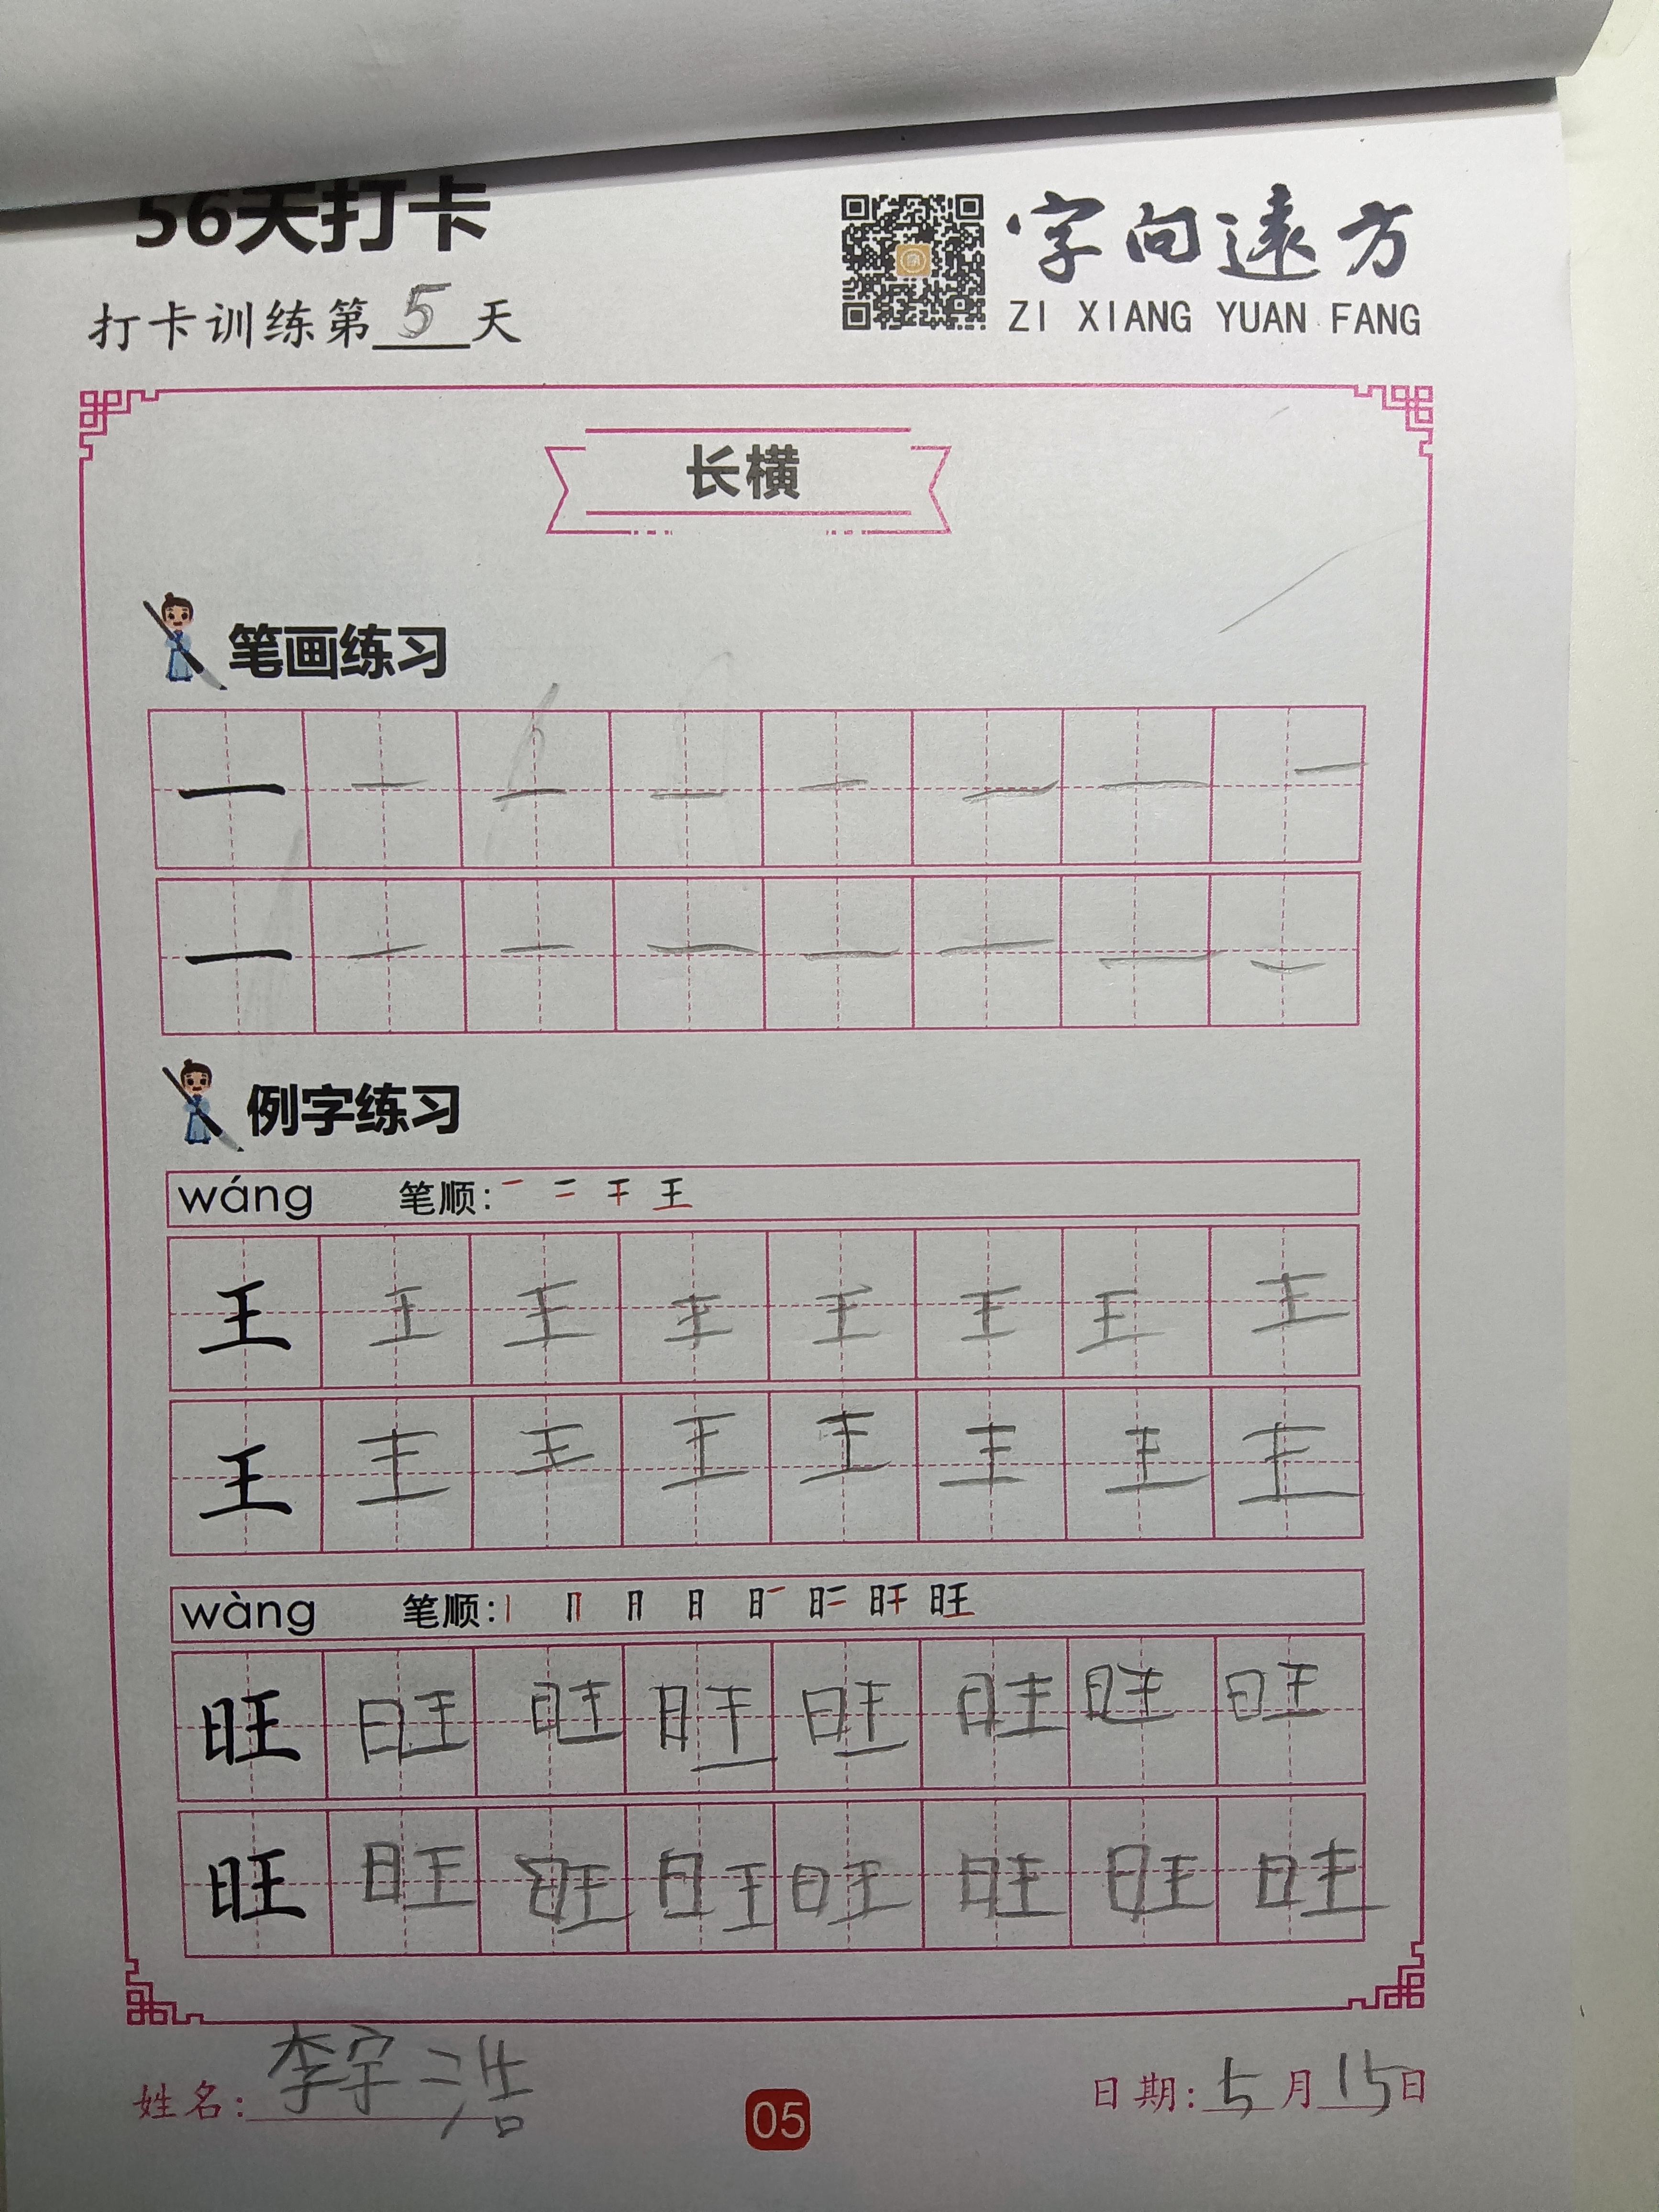 56天打卡
打卡训练第5天
字向遠方
ZI XIANG YUAN FANG
长横
笔画练习
一 一 一 一 一 一 一 一
一 一 一 一 一 一 一 一
例字练习
wáng 笔顺: 一 二 干 王
王 王 王 王 王 王 王 王
王 王 王 王 王 王 王 王
wàng 笔顺: 丨 冂 月 日 旺
旺 旺 旺 旺 旺 旺 旺 旺
旺 旺 旺 旺 旺 旺 旺 旺
姓名: 李宇浩
05
日期: 5月15日